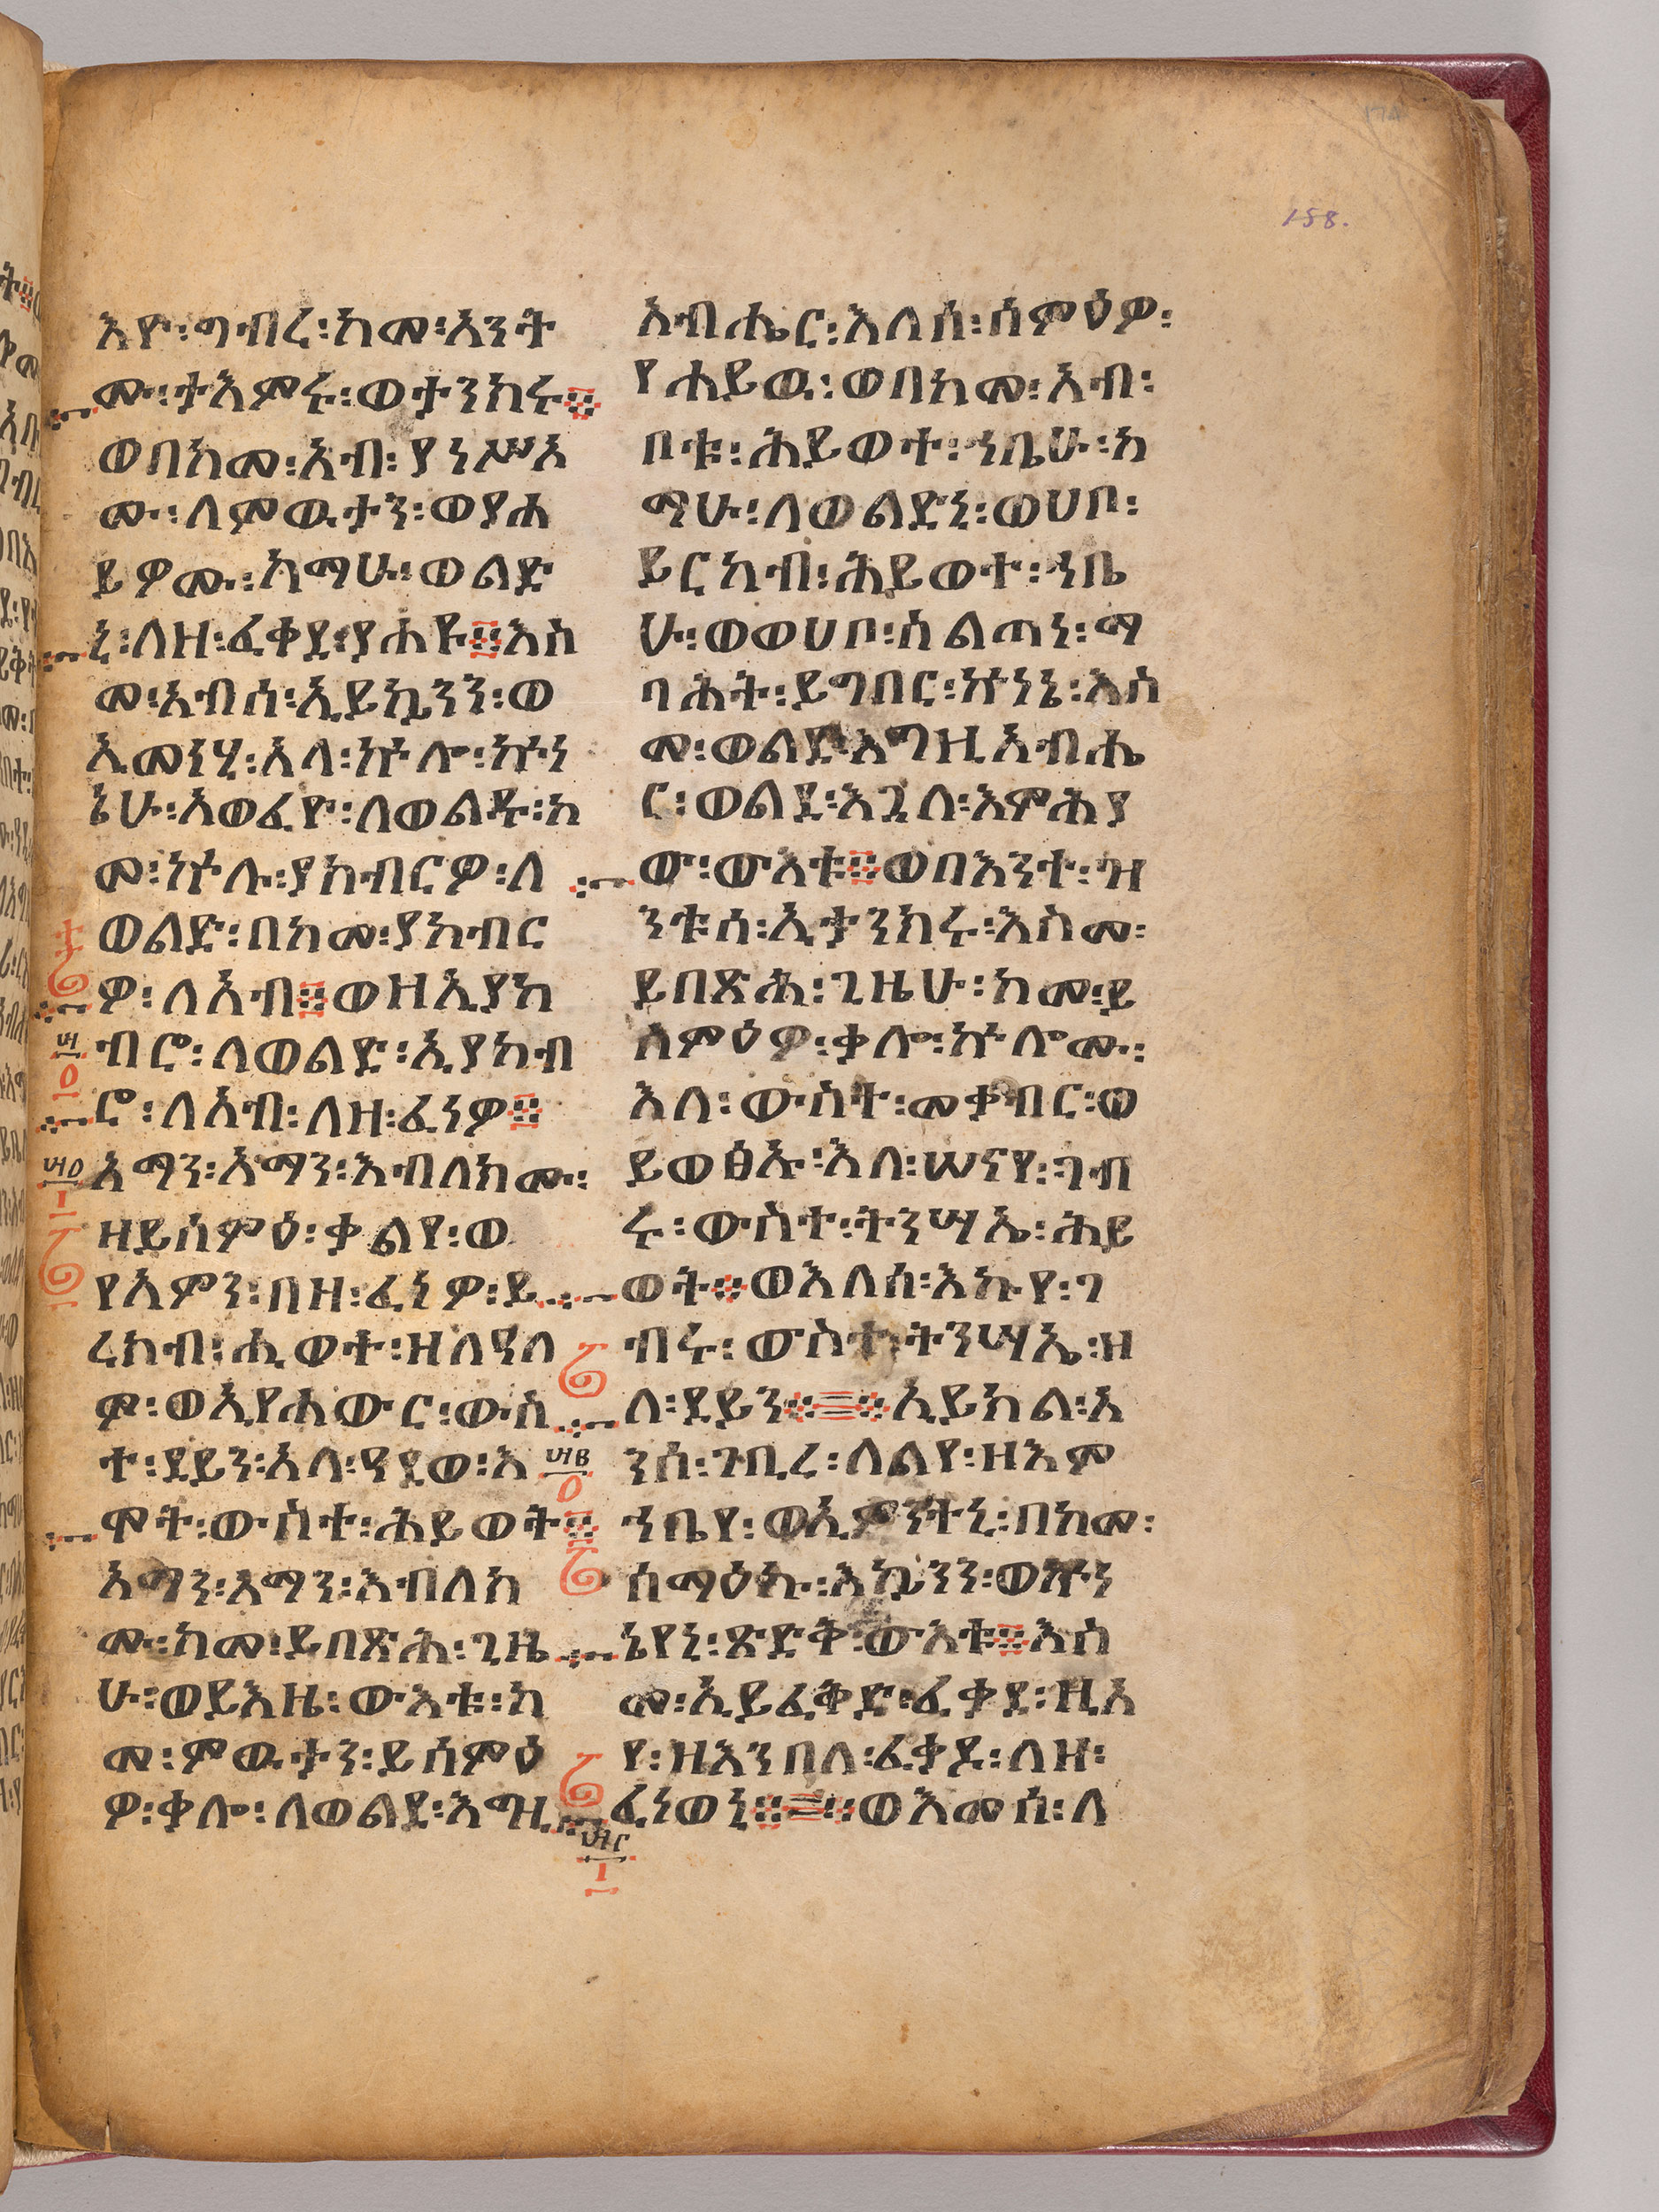 158.
እዮ፡ግብረ፡ከመ፡አንት
ሙ፡ታእምሩ፡ወታንክሩ፨
ወበከመ፡አብ፡ያነሥኦ
ሙ፡ለምዉታን፡ወያሐ
ይዎሙ፡ከማሁ፡ወልድ
ኒ፡ለዘ፡ፈቀደ፡ያሐዩ፨እስ
መ፡አብሰ፡ኢይኴንን፡ወ
ኢመነሂ፡አላ፡ኵሎ፡ኵነ
ኔሁ፡አወፈዮ፡ለወልዱ፡ከ
መ፡ኵሉ፡ያክብርዎ፡ለ
ወልድ፡በከመ፡ያከብር
ዎ፡ለአብ፨ወዘኢያከ
ብሮ፡ለወልድ፡ኢያከብ
ሮ፡ለአብ፡ለዘ፡ፈነዎ፨
አማን፡አማን፡እብለክሙ፡
ዘይሰምዕ፡ቃልየ፡ወ
የአምን፡በዘ፡ፈነዎ፡ይ
ረክብ፡ሒወተ፡ዘለዓለ
ም፡ወኢየሐውር፡ውስ
ተ፡ደይን፡አላ፡ዓደወ፡እ
ሞት፡ውስተ፡ሕይወት፨
አማን፡አማን፡እብለክ
ሙ፡ከመ፡ይበጽሕ፡ጊዜ
ሁ፡ወይእዜ፡ውእቱ፡ከ
መ፡ምዉታን፡ይሰምዕ
ዎ፡ቃሎ፡ለወልደ፡እግዚ
አብሔር፡እለሰ፡ሰምዕዎ፡
የሐይዉ፡ወበከመ፡አብ፡
ቦቱ፡ሕይወተ፡ኀቤሁ፡ከ
ማሁ፡ለወልድኒ፡ወሀቦ፡
ይርከብ፡ሕይወተ፡ኀቤ
ሁ፡ወወሀቦ፡ስልጣነ፡ማ
ባሕት፡ይግበር፡ኵነኔ፡እስ
መ፡ወልደ፡እግዚአብሔ
ር፡ወልደ፡እጓለ፡እምሕያ
ው፡ውእቱ፨ወበእንተ፡ዝ
ንቱሰ፡ኢታንክሩ፡እስመ፡
ይበጽሕ፡ጊዜሁ፡ከመ፡ይ
ሰምዕዎ፡ቃሎ፡ኵሎሙ፡
እለ፡ውስተ፡መቃብር፡ወ
ይወፅኡ፡እለ፡ሠናየ፡ገብ
ሩ፡ውስተ፡ትንሣኤ፡ሕይ
ወት፨ወእለሰ፡እኩየ፡ገ
ብሩ፡ውስተ፡ትንሣኤ፡ዘ
ለ፡ደይን፨ኢይክል፡አ
ንሰ፡ገቢረ፡ለልየ፡ዘእም
ኀቤየ፡ወኢምንተኒ፡በከመ፡
ሰማዕኩ፡እኴንን፡ወኵነ
ኔየኒ፡ጽድቅ፡ውእቱ፨እስ
መ፡ኢይፈቅድ፡ፈቃደ፡ዚአ
የ፡ዘእንበለ፡ፈቃዱ፡ለዘ፡
ፈነወኒ፨ወእመሰ፡ለ